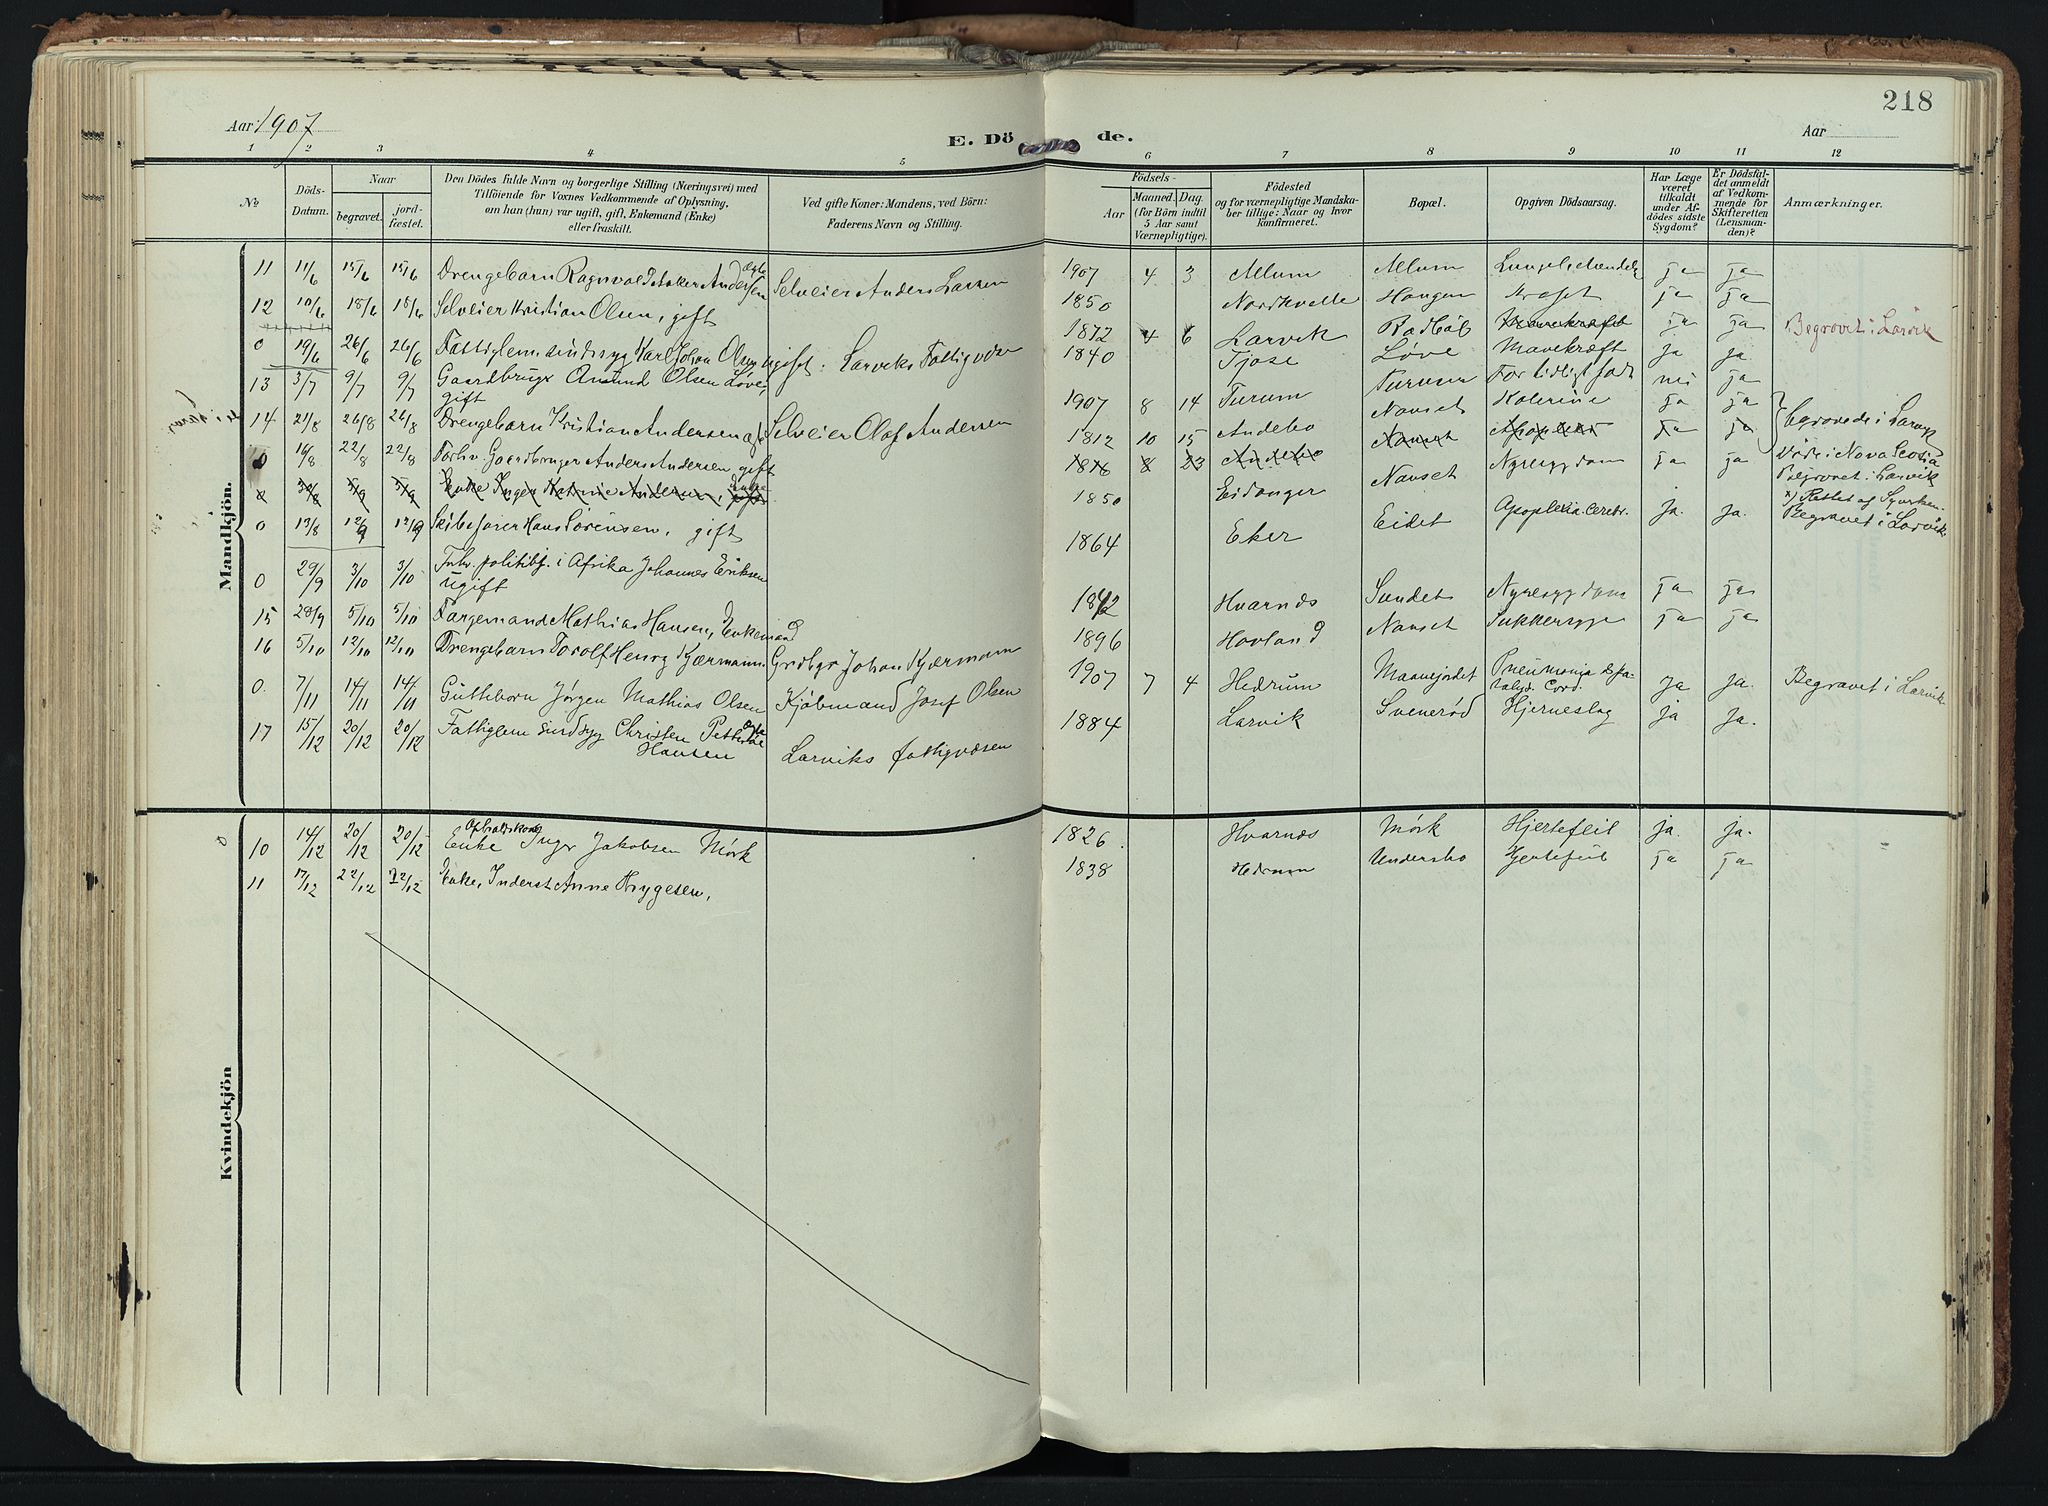 218
Aar 1907
E. Dö de.
Aar
1 2 3 4 5 6 7 8 9 10 11 12
No
Döds-Datum.
Naar begravet. jord-fæstet.
Den Dödes fulde Navn og borgerlige Stilling (Næringsvei) med
Tilföiende for Voxnes Vedkommende af Oplysning,
om han (hun) var ugift, gift, Enkemand (Enke)
eller fraskilt.
Ved gifte Koner: Mandens, ved Börn:
Faderens Navn og Stilling.
Födsels-
Aar Maaned. Dag.
(for Börn indtil
5 Aar samt
Værnepligtige).
Födested
og for værnepligtige Mandska-
ber tillige: Naar og hvor
konfirmeret.
Bopæl.
Opgiven Dödsaarsag.
Har Læge
været
tilkaldt
under Af-
dödes sidste
Sygdom?
Er Dödsfal-
det anmeldt
af Vedkom-
mende for
Skifteretten
(Lensman-
den)?
Anmærkninger.
Mandkjön.
11 11/6 15/6 15/6 Drengebarn Ragnvald Andersen ægte Selveier Anders Larsen 1907 4 3 Allum Allum ja ja
12 10/6 18/6 18/6 Selveier Kristian Olsen, gift 1850 Nordkvelle Haugen ja ja
0 19/6 26/6 26/6 Fattiglem sindssyg Karl Johan Olsen ugift: Larviks Fattigvæsen 1872 4 6 Larvik Rødbøl Mavekræft ja ja Begravet i Larvik
13 3/7 9/7 9/7 Gaardbruger Amund Olsen Løve, gift 1840 Tjose Løve Mavekræft ja ja
14 21/8 26/8 26/8 Drengebarn Kristian Andersen Selveier Olaf Andersen 1907 8 14 Furum Furum For tidligt født nei ja
0 16/8 22/8 22/8 Forhv. Gaardbruger Anders Andersen gift 1812 10 15 Andebo Nanset Kolerine ja ja Begravede i Larvik
0 30/8 5/9 5/9 Enke Inger Katrine Andersen, 1818 8 23 Andebo Nanset Apoplexi ja ja
0 13/8 12/9 12/9 Skibsfører Hans Sørensen, gift 1850 Eidanger Nanset Nyresygdom ja ja Død i Nova Scotia Begravet i Larvik
0 29/9 3/10 3/10 Fhv. politibj. i Afrika Johannes Eriksen ugift 1864 Eker Eidet Apoplexia Cerebr. ja. ja. Begravet i Larvik.
15 28/9 5/10 5/10 Færgemand Mathias Hansen, Enkemand 1842 Hvarnæs Sundet Nyresygdom ja ja
16 5/10 12/10 12/10 Drengebarn Torolf Henry Kjærmann Grdbgr Johan Kjærmann 1896 Hovland Nanset Sukkersyge ja ja
0. 7/11 14/11 14/11 Guttebarn Jørgen Mathias Olsen Kjøbmand Josef Olsen 1907 7 4 Hedrum Maanejordet Pneumonia & Paralys. Cord. ja ja. Begravet i Larvik
17 15/12 20/12 20/12 Fattiglem sindssyg Christen Hansen Larviks fattigvæsen 1884 Larvik Svenerød Hjerneslag ja ja.
Kvindekjön
10 14/12 20/12 20/12 Enke Inger Jakobsen Mørk 1826. Hvarnæs Mørk Hjertefeil ja. ja.
11 17/12 22/12 22/12 Enke, Inderst Anne Trygesen, 1838 Hedrum Undersbo Hjertefeil ja ja